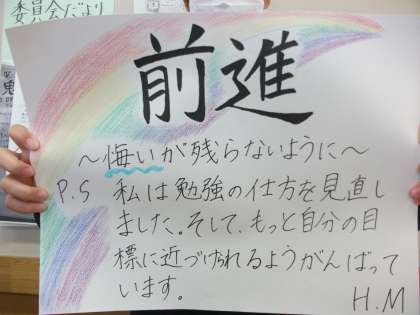 委員会だより
前進
～悔いが残らないように～
P.S 私は勉強の仕方を見直し
ました。そして、もっと自分の目
標に近づけられるようがんばって
います。
H.M